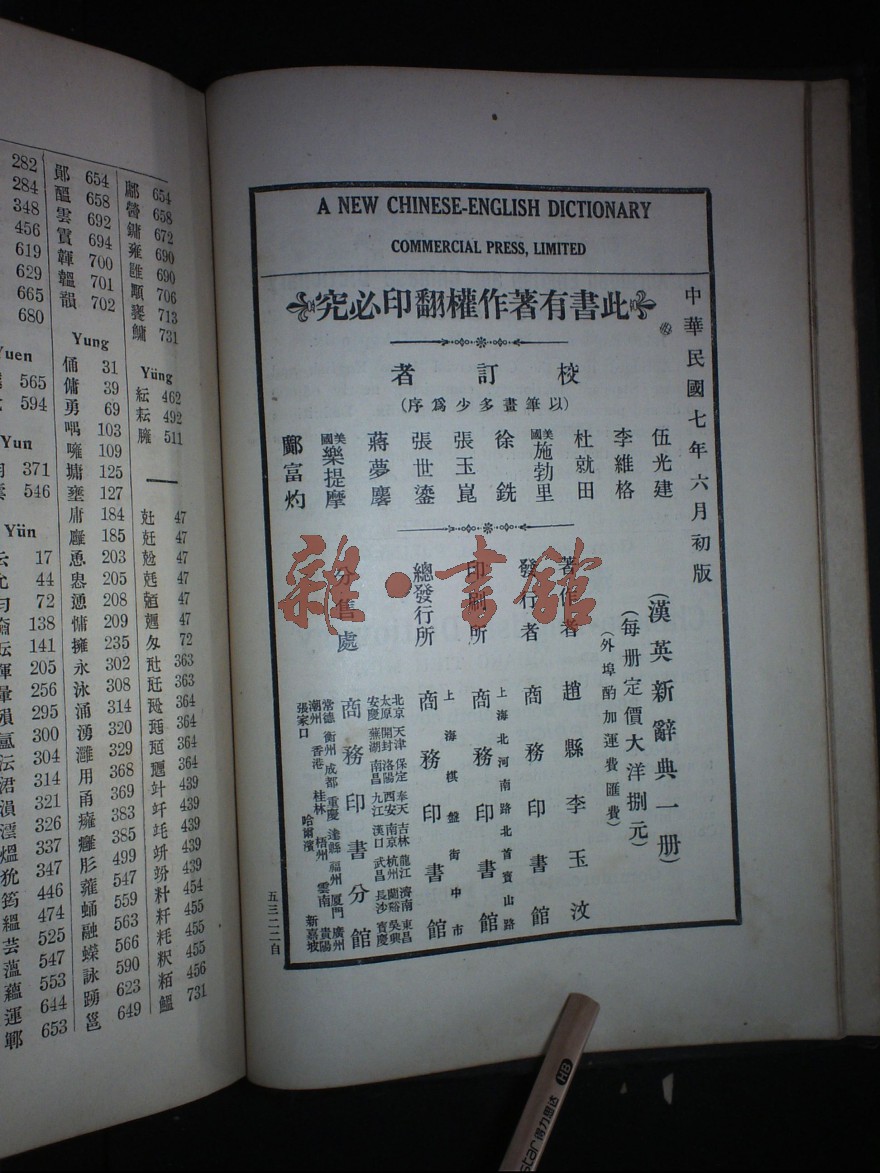 282
284
348
456
619
629
665
680
Yuen
565
594
Yun
371
546
Yün
云 17
允 44
匀 72
138
141
暉 205
暈 256
殞 295
氳 300
沄 304
涒 314
溳 321
澐 326
熅 337
狁 347
筠 446
縕 474
芸 525
薀 547
蘊 553
運 644
鄆 653
鄖 654
醞 658
雲 692
霣 694
韗 700
韞 701
韻 702
Yung
俑 31
傭 39
勇 69
喁 103
噰 109
墉 125
壅 127
庸 184
廱 185
恿 203
205
慂 208
慵 209
擁 235
永 302
泳 308
涌 314
湧 320
灉 329
用 368
甬 369
癕 383
癰 385
肜 499
雍 547
蛹 559
融 563
蠑 566
詠 590
踴 623
邕 649
鄘 654
醟 658
鏞 672
雍 690
雝 690
顒 706
饔 713
鱅 731
Yüng
紜 462
耘 492
臃 511
47
47
47
47
47
47
72
363
363
364
364
364
364
竍 439
竏 439
竓 439
439
竕 439
籵 454
籽 455
粍 455
455
粨 456
鰮 731
A NEW CHINESE-ENGLISH DICTIONARY
COMMERCIAL PRESS, LIMITED
此書有著作權翻印必究
中華民國七年六月初版
校訂者
(以筆畫多少爲序)
伍光建
李維格
杜就田
美國施勃里
徐銑
張玉崑
張世鎏
蔣夢麐
美國樂提摩
鄺富灼
(漢英新辭典一册)
(每册定價大洋捌元)
(外埠酌加運費匯費)
著作者 趙縣李玉汶
發行者 商務印書館
上海北河南路北首寶山路
印刷所 商務印書館
上海棋盤街中市
總發行所 商務印書館
分售處 商務印書分館
北京 天津 保定 奉天 吉林 龍江 濟南 東昌
太原 開封 洛陽 西安 南京 杭州 蘭谿 吳興
安慶 蕪湖 南昌 九江 漢口 武昌 長沙 寶慶
常德 衡州 成都 重慶 達縣 福州 厦門 廣州
潮州 香港 桂林 梧州 雲南 貴陽
張家口 哈爾濱 新嘉坡
五三二二自
雜·書館
star 得力思达 HB